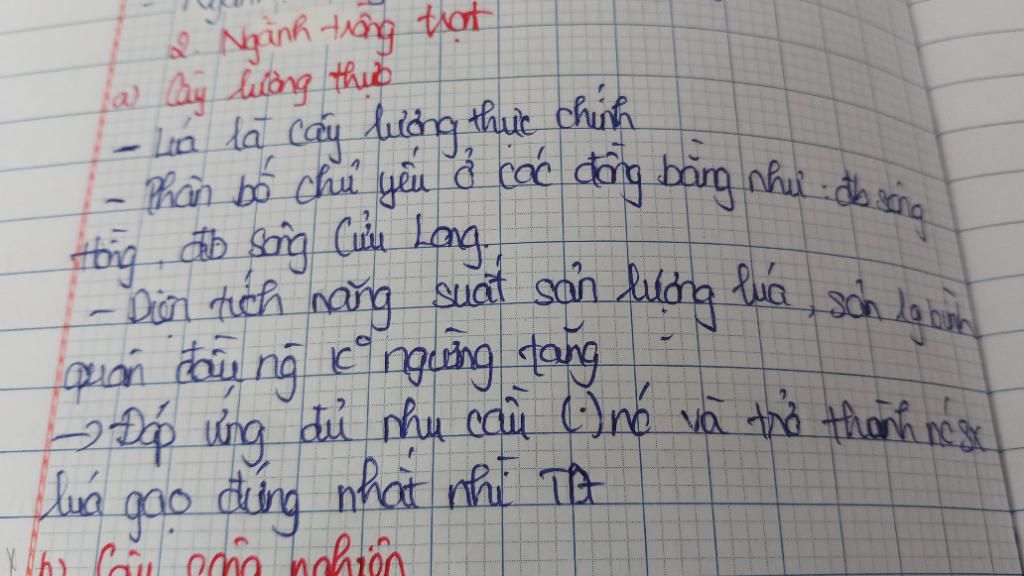 2. Ngành trồng trọt
a) Cây lương thực
- Lúa là cây lương thực chính
- Phân bố chủ yếu ở các đồng bằng như: đb sông
Hồng, đb sông Cửu Long.
- Diện tích năng suất sản lượng lúa, sản lg bình
quân đầu ng k° ngừng tăng
-> Đáp ứng đủ nhu cầu (.) nc và trở thành nc sx
lúa gạo đứng nhất nhì TG
b) Cây công nghiệp